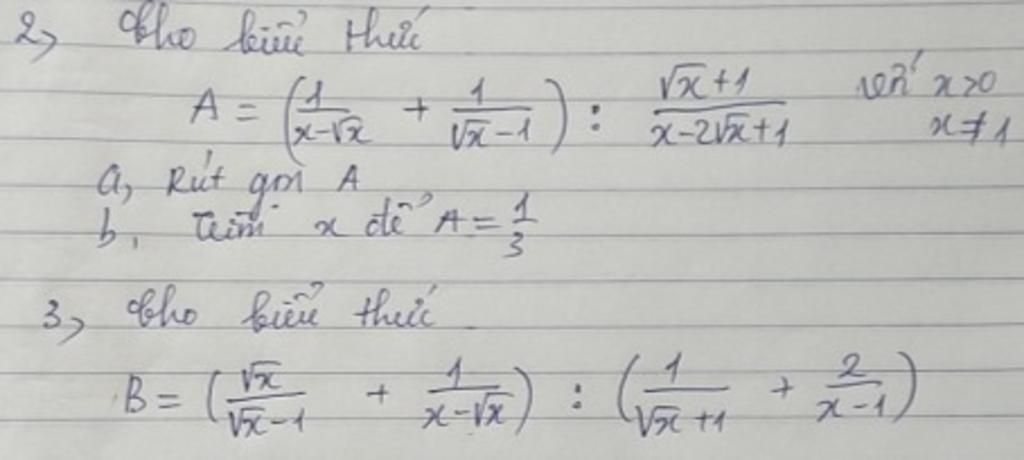 2, Cho biểu thức
A = (1/(x-√x) + 1/(√x-1)) : (√x+1)/(x-2√x+1) với x>0
x≠1
a, Rút gọn A
b, Tìm x để A = 1/3
3, Cho biểu thức
B = (√x/(√x-1) + 1/(x-√x)) : (1/(√x+1) + 2/(x-1))